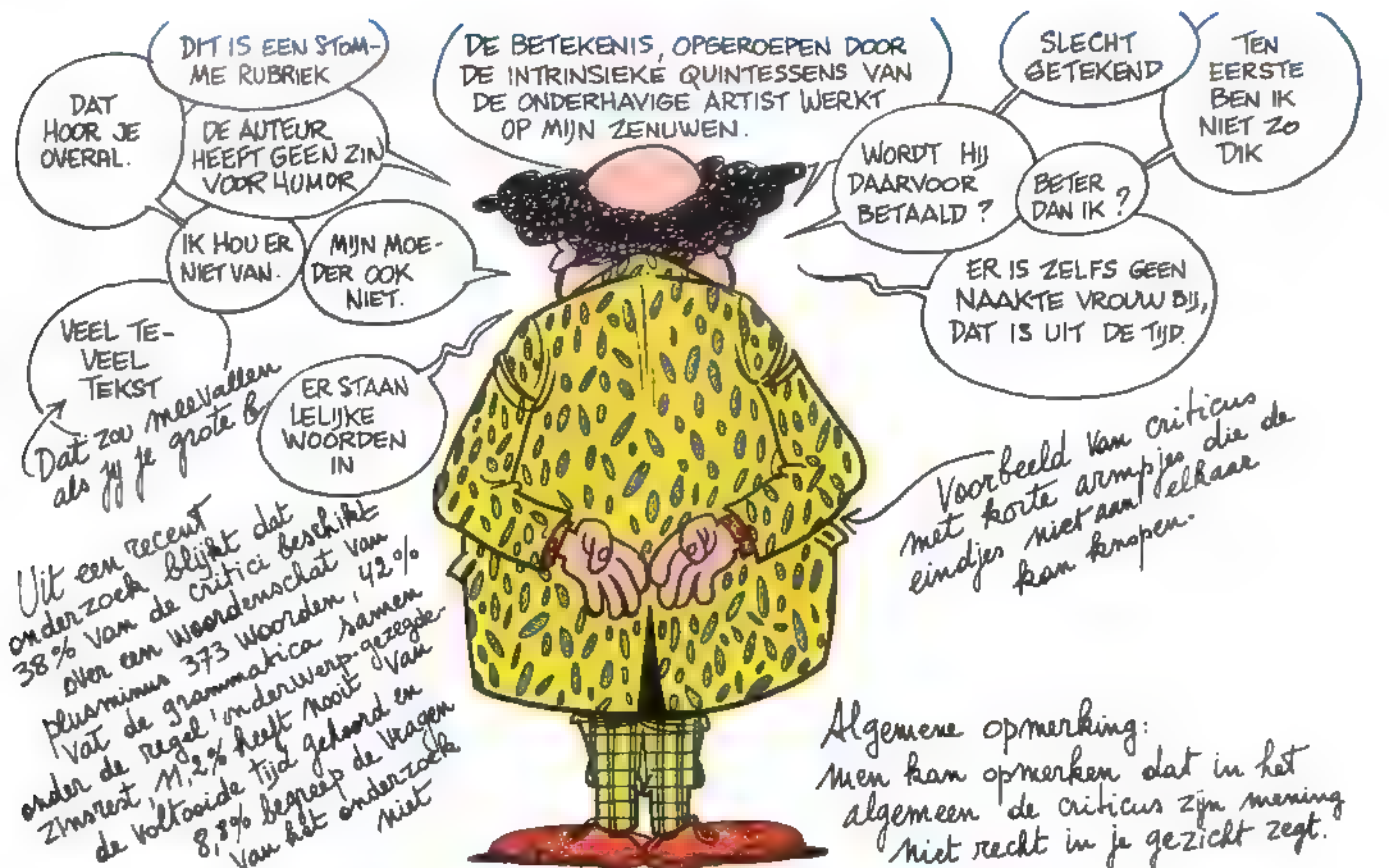 DIT IS EEN STOM-
ME RUBRIEK
DAT
HOOR JE
OVERAL.
DE AUTEUR
HEEFT GEEN ZIN
VOOR HUMOR
IK HOU ER
NIET VAN.
MIJN MOE-
DER OOK
NIET.
VEEL TE-
VEEL
TEKST
Dat zou meevallen
als jij je grote b
ER STAAN
LELIJKE
WOORDEN
IN
DE BETEKENIS, OPGEROEPEN DOOR
DE INTRINSIEKE QUINTESSENS VAN
DE ONDERHAVIGE ARTIST WERKT
OP MIJN ZENUWEN.
SLECHT
GETEKEND
TEN
EERSTE
BEN IK
NIET ZO
DIK
WORDT HIJ
DAARVOOR
BETAALD ?
BETER
DAN IK ?
ER IS ZELFS GEEN
NAAKTE VROUW BIJ,
DAT IS UIT DE TIJD.
Voorbeeld van criticus
met korte armpjes die de
eindjes niet aan elkaar
kan knopen.
Uit een recent
onderzoek blijkt dat
38% van de critici beschikt
over een woordenschat van
plusminus 373 woorden, 42%
vat de grammatica samen
onder de regel 'onderwerp-gezegde-
zinsrest, 11,2% heeft nooit van
de voltooide tijd gehoord en
8,8% begreep de vragen
van het onderzoek
niet
Algemene opmerking:
men kan opmerken dat in het
algemeen de criticus zijn mening
niet recht in je gezicht zegt.